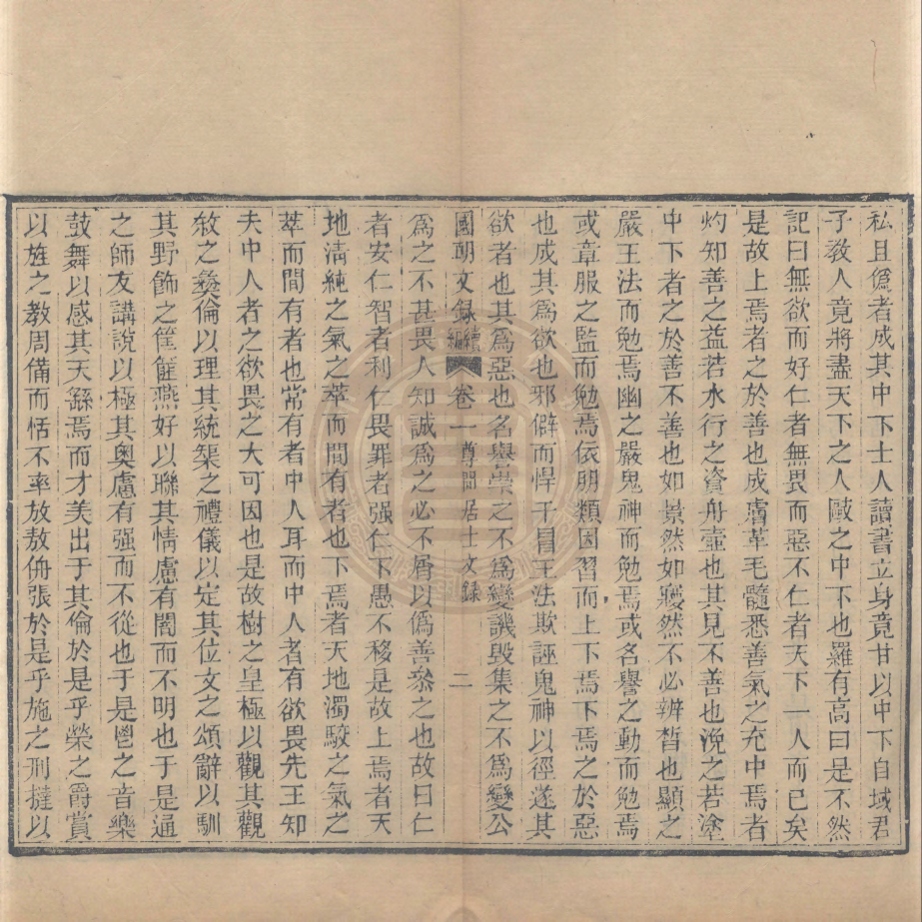 私且僞者成其中下士人讀書立身竟甘以中下自域君
子教人竟將盡天下之人敺之中下也羅有高曰是不然
記曰無欲而好仁者無畏而惡不仁者天下一人而已矣
是故上焉者之於善也成膚革毛髓悉善氣之充中焉者
灼知善之益若水行之資舟壺也其見不善也浼之若塗
中下者之於善不善也如景然如寢然不必辨晳也顯之
嚴王法而勉焉幽之嚴鬼神而勉焉或名譽之動而勉焉
或章服之監而勉焉依朋類因習而上下焉下焉之於惡
也成其爲欲也邪僻而悍干冒王法欺誣鬼神以徑遂其
欲者也其爲惡也名譽崇之不爲變譏毀集之不爲變公
國朝文錄續編 卷一 尊聞居士文錄 二
爲之不甚畏人知誠爲之必不屑以僞善參之也故曰仁
者安仁智者利仁畏罪者强仁下愚不移是故上焉者天
地淸純之氣之萃而間有者也下焉者天地濁駮之氣之
萃而間有者也常有者中人耳而中人者有欲畏先王知
夫中人者之欲畏之大可因也是故樹之皇極以觀其觀
敘之彝倫以理其統築之禮儀以定其位文之頌辭以馴
其野飾之筐篚燕好以聯其情慮有闇而不明也于是通
之師友講說以極其奧慮有强而不從也于是鬯之音樂
鼓舞以感其天繇焉而才美出于其倫於是乎榮之爵賞
以旌之教周備而恬不率放敖侜張於是乎施之刑撻以